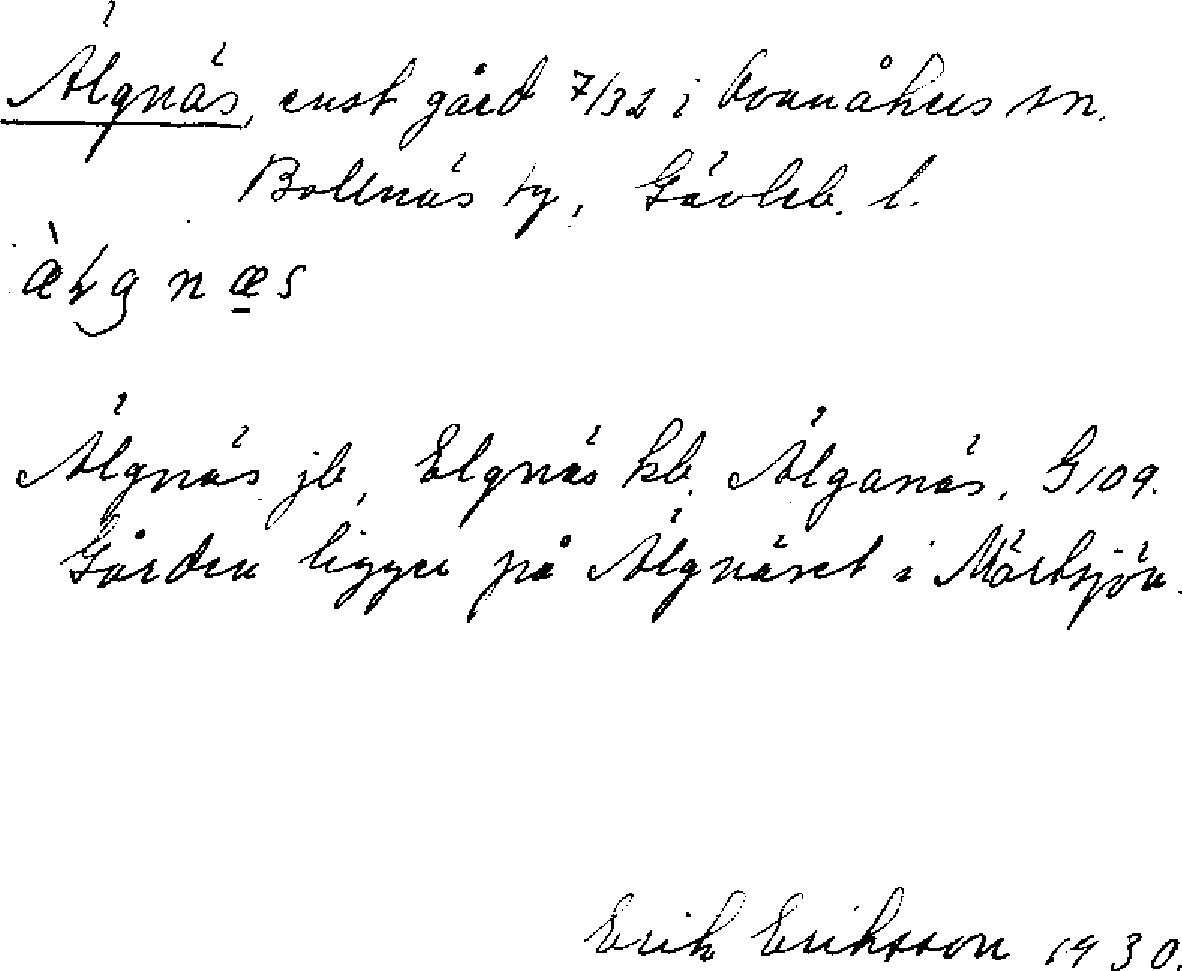 Älgnäs, enst gård 7/32 i Ovanåkers sn.
Bollnäs tg, Gävleb. l.
Älgnäs jb, Elgnäs kb. Älganäs, G 109.
Gården ligger på Älgnäset i Mårtsjön.
Erik Eriksson 1930.